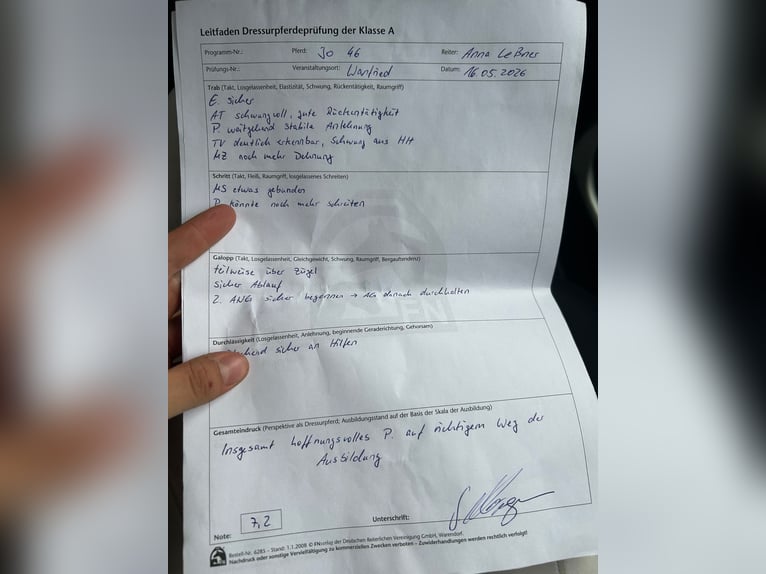 Leitfaden Dressurpferdeprüfung der Klasse A
Programm-Nr.: Pferd: Jo 46 Reiter: Anna Leßner
Prüfungs-Nr.: Veranstaltungsort: Wanfried Datum: 16.05.2026
Trab (Takt, Losgelassenheit, Elastizität, Schwung, Rückentätigkeit, Raumgriff)
E. sicher
AT schwungvoll, gute Rückentätigkeit
P. weitgehend stabile Anlehnung
TV deutlich erkennbar, Schwung aus HH
HZ noch mehr Dehnung
Schritt (Takt, Fleiß, Raumgriff, losgelassenes Schreiten)
MS etwas gebunden
P. könnte noch mehr schreiten
Galopp (Takt, Losgelassenheit, Gleichgewicht, Schwung, Raumgriff, Bergauftendenz)
teilweise über Zügel
sicher Ablauf
2. ANG sicher begonnen → AG danach durchhalten
Durchlässigkeit (Losgelassenheit, Anlehnung, beginnende Geraderichtung, Gehorsam)
sicher an Hilfen
Gesamteindruck (Perspektive als Dressurpferd; Ausbildungsstand auf der Basis der Skala der Ausbildung)
Insgesamt hoffnungsvolles P. auf richtigem Weg der
Ausbildung
Note: 7,2 Unterschrift:
Bestell-Nr. 6285 – Stand: 1.1.2008 © FNverlag der Deutschen Reiterlichen Vereinigung GmbH, Warendorf.
Nachdruck oder sonstige Vervielfältigung zu kommerziellen Zwecken verboten – Zuwiderhandlungen werden rechtlich verfolgt!
FN